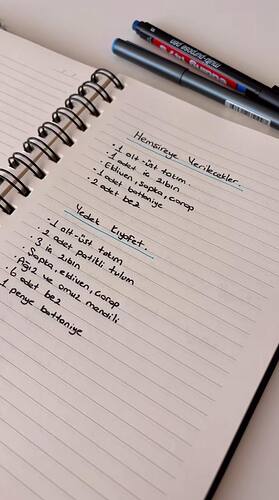 multi-purpose pen
edding
Hemşireye Verilecekler.
· 1 alt-üst takım.
· 1 adet iç zıbın
· Eldiven, şapka, çorap
· 1 adet battaniye
· 2 adet bez
Yedek Kıyafet.
· 1 alt-üst takım
· 2 adet patikli tulum
· 3 iç zıbın
· Şapka, eldiven, çorap
· Ağız ve omuz mendili
· 6 adet bez
1 penye battaniye